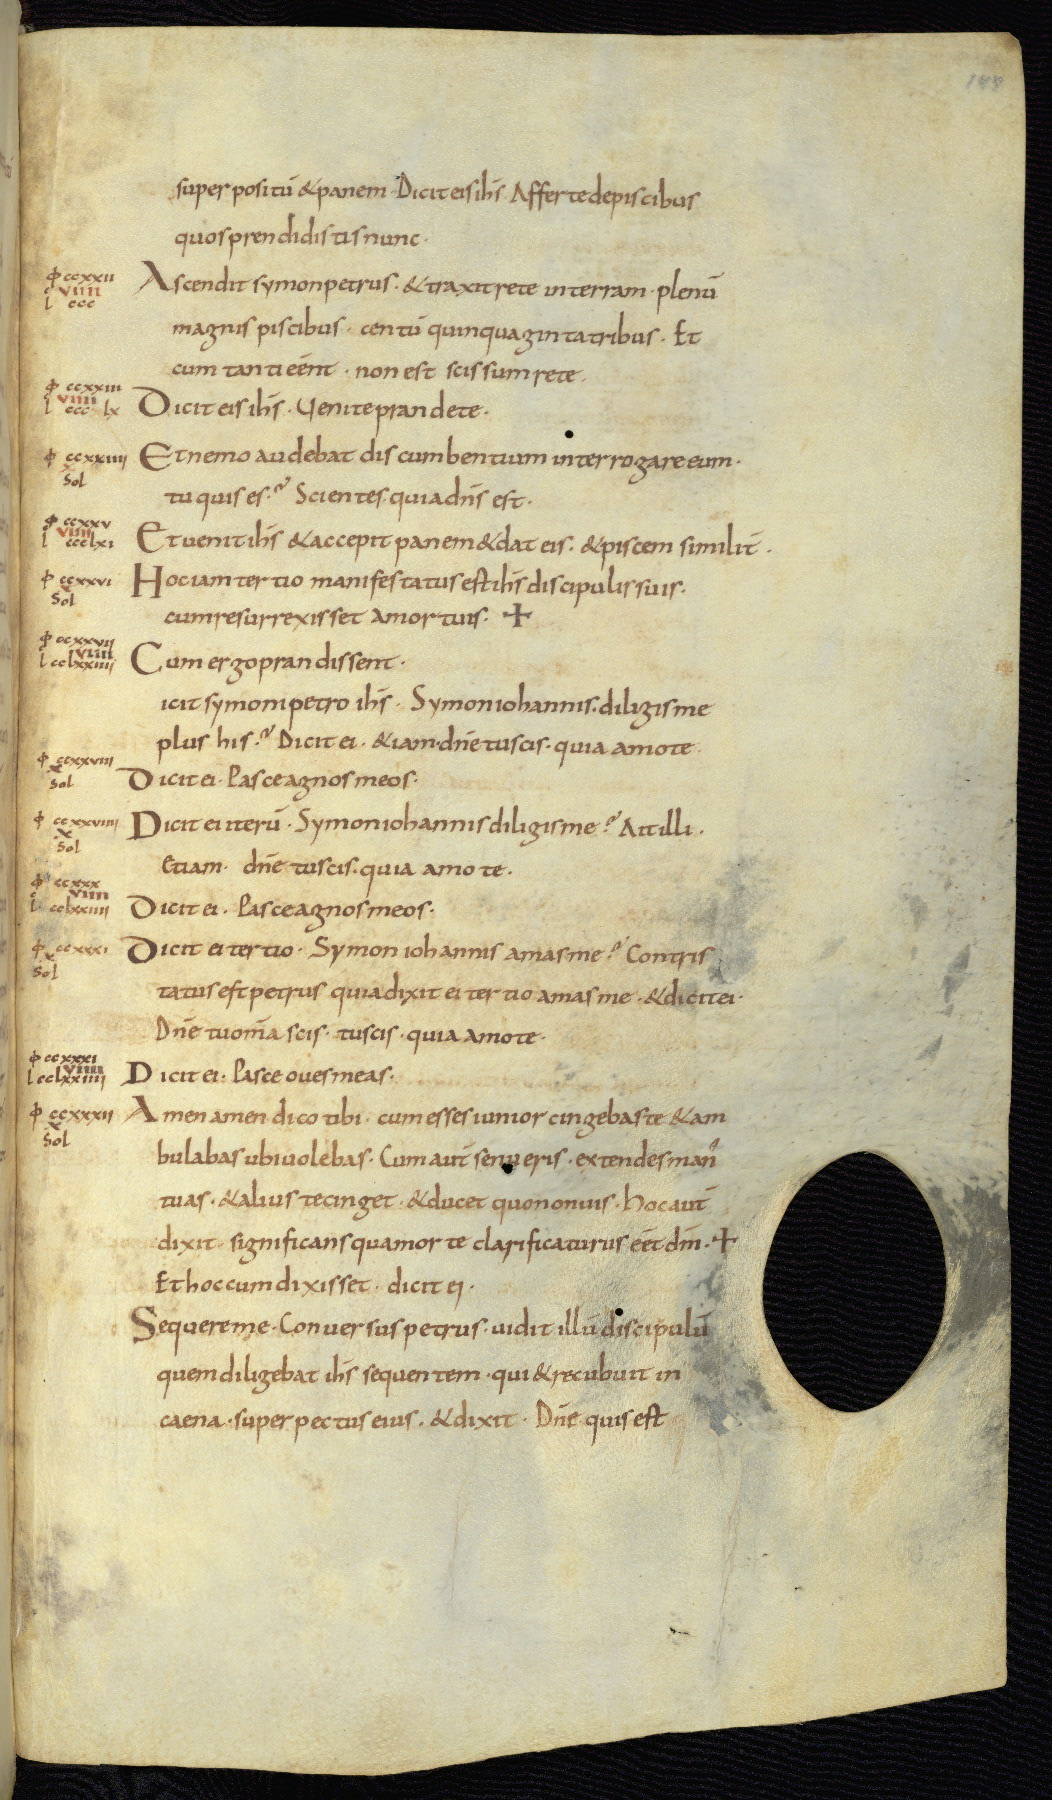 148
super positū & panem · Dicit eis ihs̄ · Afferte depiscibus
quos prendidistis nunc ·
φ ccxxii
viiii
l ccc
Ascendit symon petrus · & traxit rete in terram · plenū
magnis piscibus · centū quinquaginta tribus · Et
cum tanti eēnt · non est scissum rete ·
φ ccxxiii
viiii
l ccc lx
Dicit eis ihs̄ · Venite prandete ·
φ ccxxiiii
x
Sol
Et nemo audebat discumbentium interrogare eum ·
tu quis es ·? Scientes quia dn̄s est ·
φ ccxxv
viiii
l ccclxi
Et uenit ihs̄ & accepit panem & dat eis · & piscem similit̄ ·
φ ccxxvi
x
Sol
Hoc iam tertio manifestatus est ihs̄ discipulis suis ·
cum resurrexisset amortuis · +
φ ccxxvii
viiii
l cclxxiiii
Cum ergo prandissent ·
icit symoni petro ihs̄ · Symon iohannis · diligis me
plus his ·? Dicit ei · &iam · dn̄e tu scis · quia amo te ·
φ ccxxviii
x
Sol
Dicit ei · Pasce agnos meos ·
φ ccxxviiii
x
Sol
Dicit ei iterū · Symon iohannis diligis me ·? Ait illi ·
Etiam · dn̄e tu scis · quia amo te ·
φ ccxxx
viiii
l cclxxiiii
Dicit ei · Pasce agnos meos ·
φ ccxxxi
x
Sol
Dicit ei tertio · Symon iohannis amas me ·? Contris
tatus est petrus quia dixit ei tertio amas me · & dicit ei ·
Dn̄e tu om̄a scis · tu scis · quia amo te ·
φ ccxxxi
viiii
l cclxxiiii
Dicit ei · Pasce oues meas ·
φ ccxxxii
x
Sol
Amen amen dico tibi · cum esses iunior cingebas te & am
bulabas ubi uolebas · Cum aut̄ senueris · extendes man᷒
tuas · & alius te cinget · & ducet quo non uis · hoc aut̄
dixit · significans qua morte clarificaturus eēt dm̄ · +
Et hoc cum dixisset · dicit ei ·
Sequere me · Conuersus petrus · uidit illū discipulū
quem diligebat ihs̄ sequentem · qui & recubuit in
caena · super pectus eius · & dixit · Dn̄e quis est